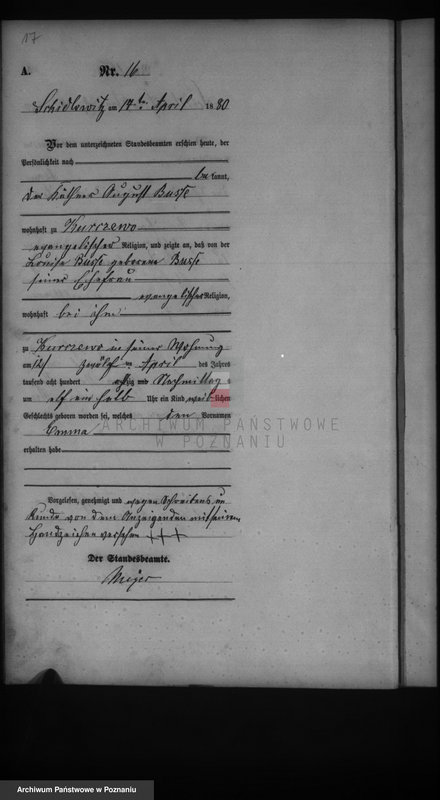 17
A.
Nr. 16
Schidlowitz am 14ten April 1880
Vor dem unterzeichneten Standesbeamten erschien heute, der
Persönlichkeit nach
be kannt,
der Käthner August Busse
wohnhaft zu Kurczewo
evangelischer Religion, und zeigte an, daß von der
Louise Busse geborene Busse
seiner Ehefrau
evangelischer Religion,
wohnhaft bei ihm
zu Kurczewo in seiner Wohnung
am 12/ zwölften April des Jahres
tausend acht hundert achtzig und Nachmittags
um elf ein halb Uhr ein Kind weib lichen
Geschlechts geboren worden sei, welches den Vornamen
Emma
erhalten habe
Vorgelesen, genehmigt und wegen Schreibens un
Kunde von dem Anzeigenden mit seinem
Handzeichen versehen +++
Der Standesbeamte.
Meyer
ARCHIWUM PAŃSTWOWE
W POZNANIU
Archiwum Państwowe w Poznaniu